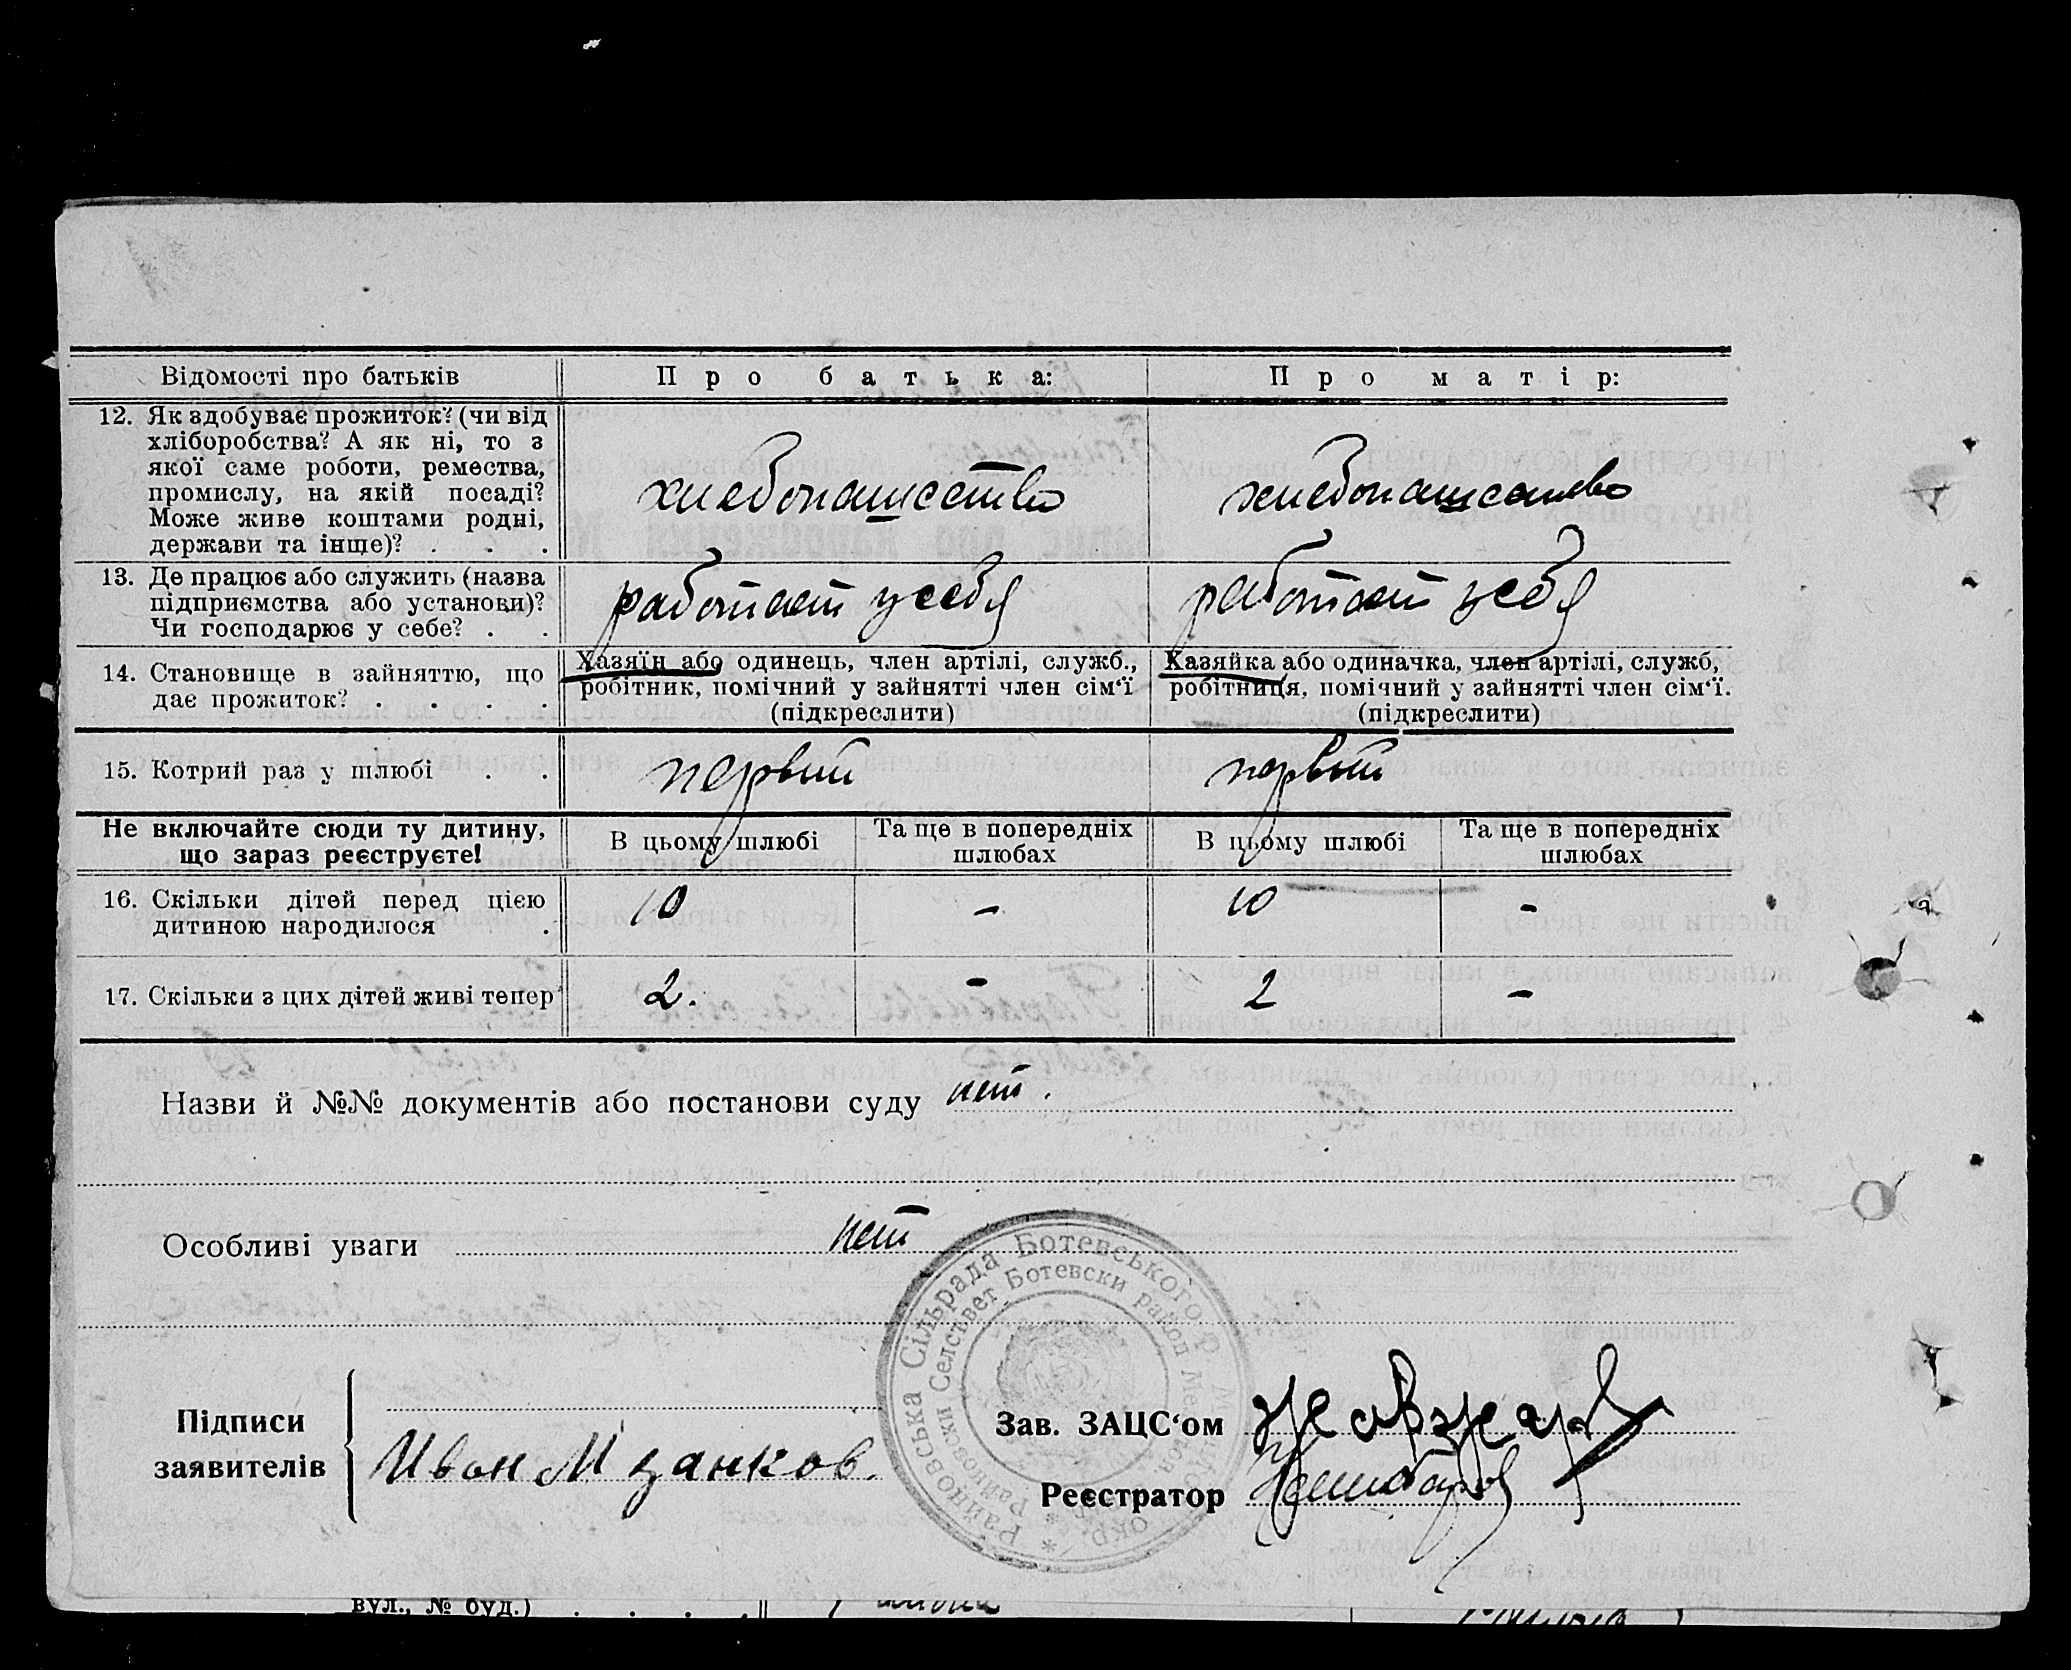 Відомості про батьків
Про батька:
Про матір:
12. Як здобуває прожиток? (чи від
хліборобства? А як ні, то з
якої саме роботи, ремества,
промислу, на якій посаді?
Може живе коштами родні,
держави та інще)? . . .
хлебопашество
хлебопашество
13. Де працює або служить (назва
підприємства або установи)?
Чи господарює у себе? . .
работает у себя
работает у себя
14. Становище в зайняттю, що
дає прожиток? . . . .
Хазяїн або одинець, член артілі, служб.,
робітник, помічний у зайнятті член сім‘ї
(підкреслити)
Хазяйка або одиначка, член артілі, служб,
робітниця, помічний у зайнятті член сім‘ї.
(підкреслити)
15. Котрий раз у шлюбі . .
первый
первый
Не включайте сюди ту дитину,
що зараз реєструєте!
В цьому шлюбі
Та ще в попередніх
шлюбах
В цьому шлюбі
Та ще в попередніх
шлюбах
16. Скільки дітей перед цією
дитиною народилося .
10
-
10
-
17. Скільки з цих дітей живі тепер
2.
-
2
-
Назви й №№ документів або постанови суду нет.
Особливі уваги нет
Райновська Сільрада Ботевського Р.
окр.
Райновски Селсъвет Ботевски район
Підписи
заявителів
Иван М занков.
Зав. ЗАЦС‘ом
Реєстратор
вул., № буд.)